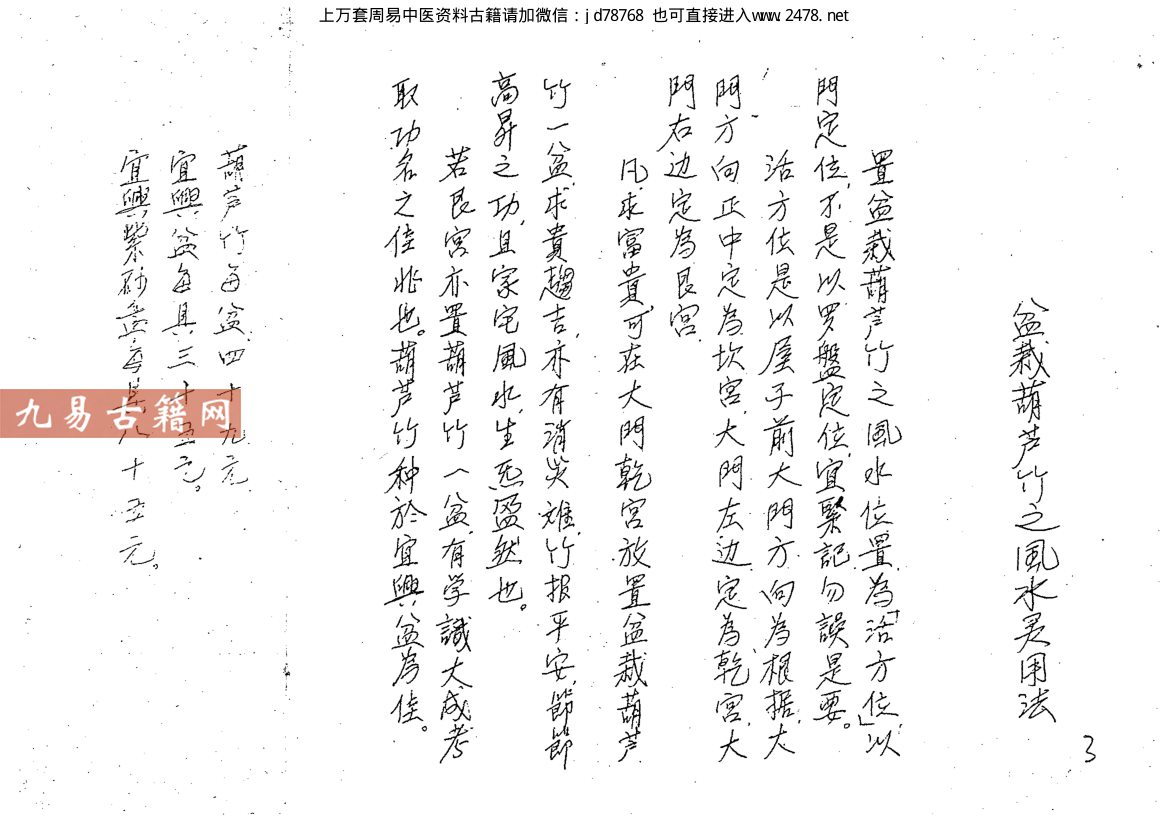 上万套周易中医资料古籍请加微信：jd78768 也可直接进入www.2478.net
盆栽葫芦竹之風水灵用法
3
置盆栽葫芦竹之風水位置，為「活方位」，以
門定位，不是以罗盤定位，宜緊記勿誤是要。
活方位是以屋子前大門方向為根据，大
門方向正中定為坎宮，大門左边定為乾宮，大
門右边定為艮宮。
凡求富貴，可在大門乾宮放置盆栽葫芦
竹一盆，求貴趨吉，亦有消災难，竹报平安，節節
高昇之功，且家宅風水，生炁盈然也。
若艮宮亦置葫芦竹一盆，有学識大成考
取功名之佳兆也。葫芦竹种於宜興盆為佳。
葫芦竹每盆，四十九元
宜興盆每具三十五元。
宜興紫砂盆每具，八十五元。
九易古籍网